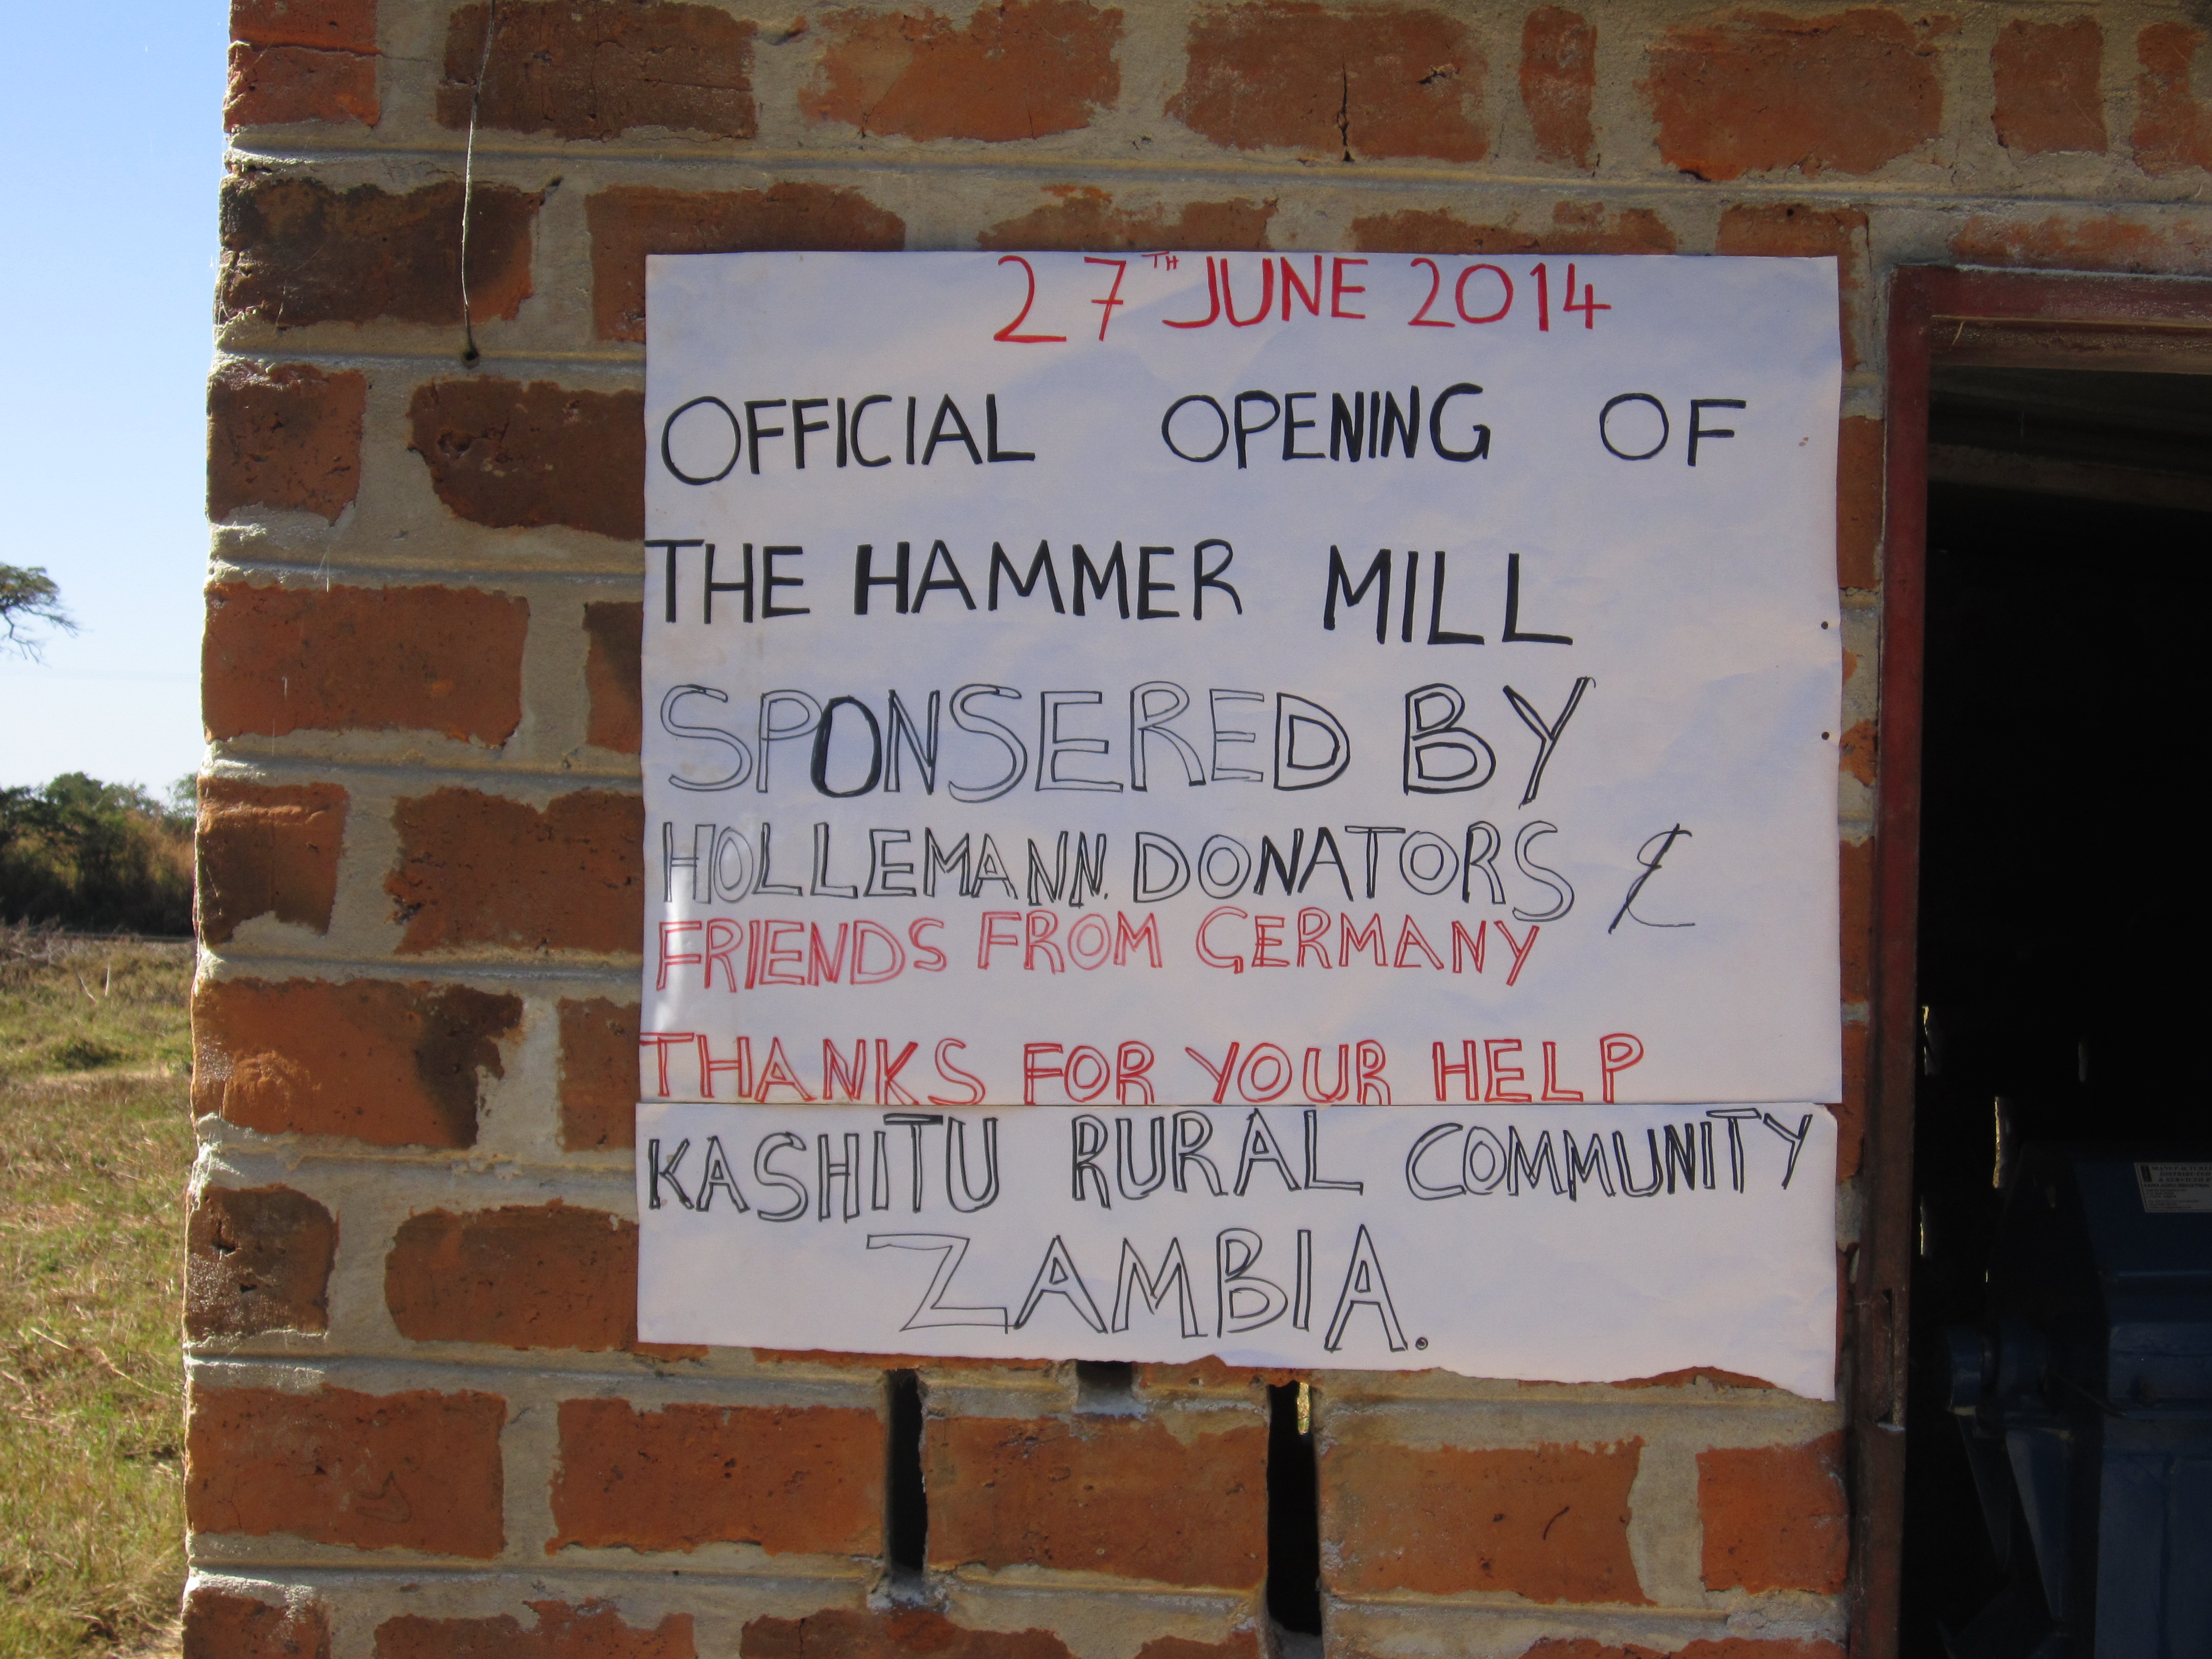 27TH JUNE 2014
OFFICIAL OPENING OF
THE HAMMER MILL
SPONSERED BY
HOLLEMANN. DONATORS &
FRIENDS FROM GERMANY
THANKS FOR YOUR HELP
KASHITU RURAL COMMUNITY
ZAMBIA.